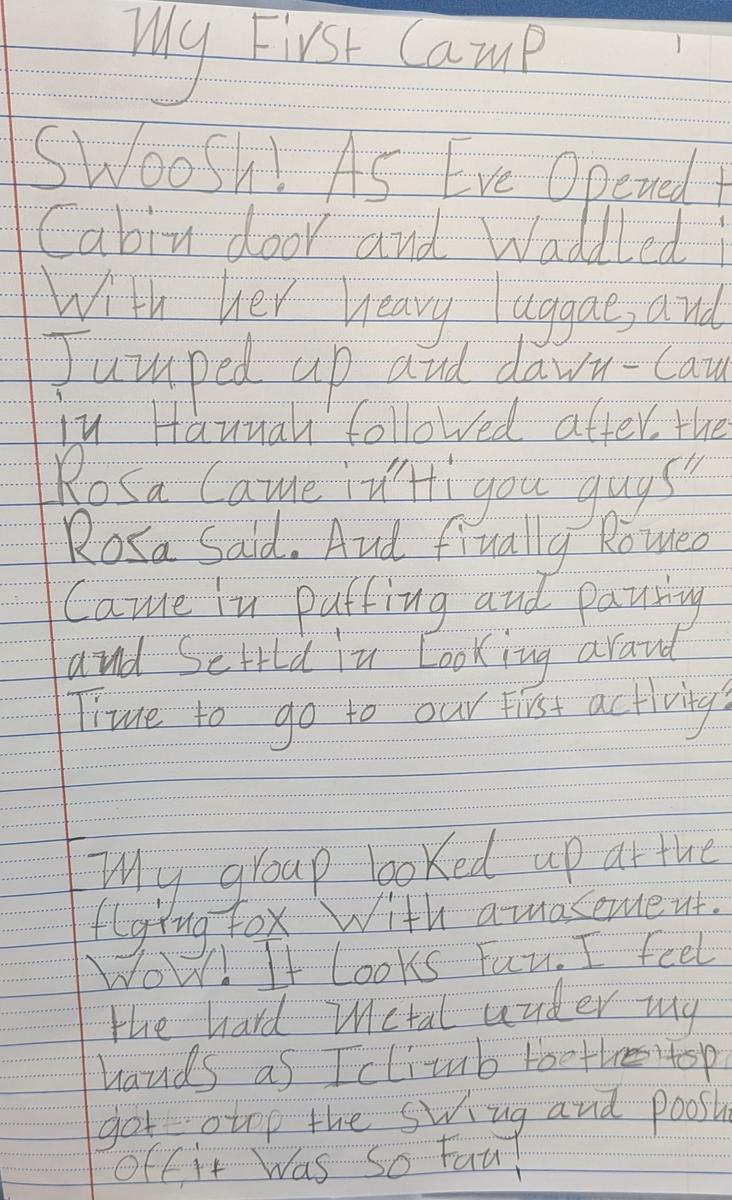 My First Camp 1
Swoosh! As Eve Opened t
Cabin door and Waddled i
With her heavy luggae, and
Jumped up and dawn - Cam
in Hannah followed after. the
Rosa Came in "Hi you guys"
Rosa Said. And finally Romeo
Came in puffing and panting
and Settld in Looking arand
Time to go to our First activity?
My group looked up at the
flying fox With amasement.
WoW! It Looks Fun. I feel
the hard Metal under my
hands as I climb top
got otop the swing and poosh
off, it Was So Fun!